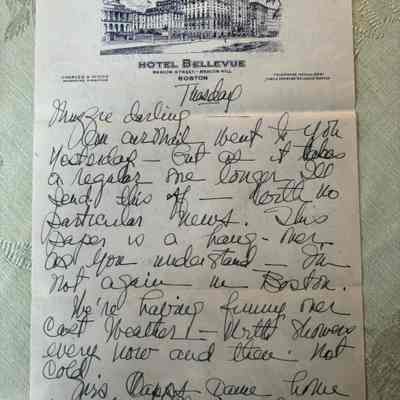 HOTEL BELLEVUE
BEACON STREET - BEACON HILL
BOSTON
Thusday
darling
An airmail went to you
yesterday – but as it takes
a regular one longer I'll
send this off – with no
particular news. This
paper is a hang-over
as you understand – I'm
not again in Boston.
We're having funny over
cast weather – with showers
every now and then. Not
cold.
came home